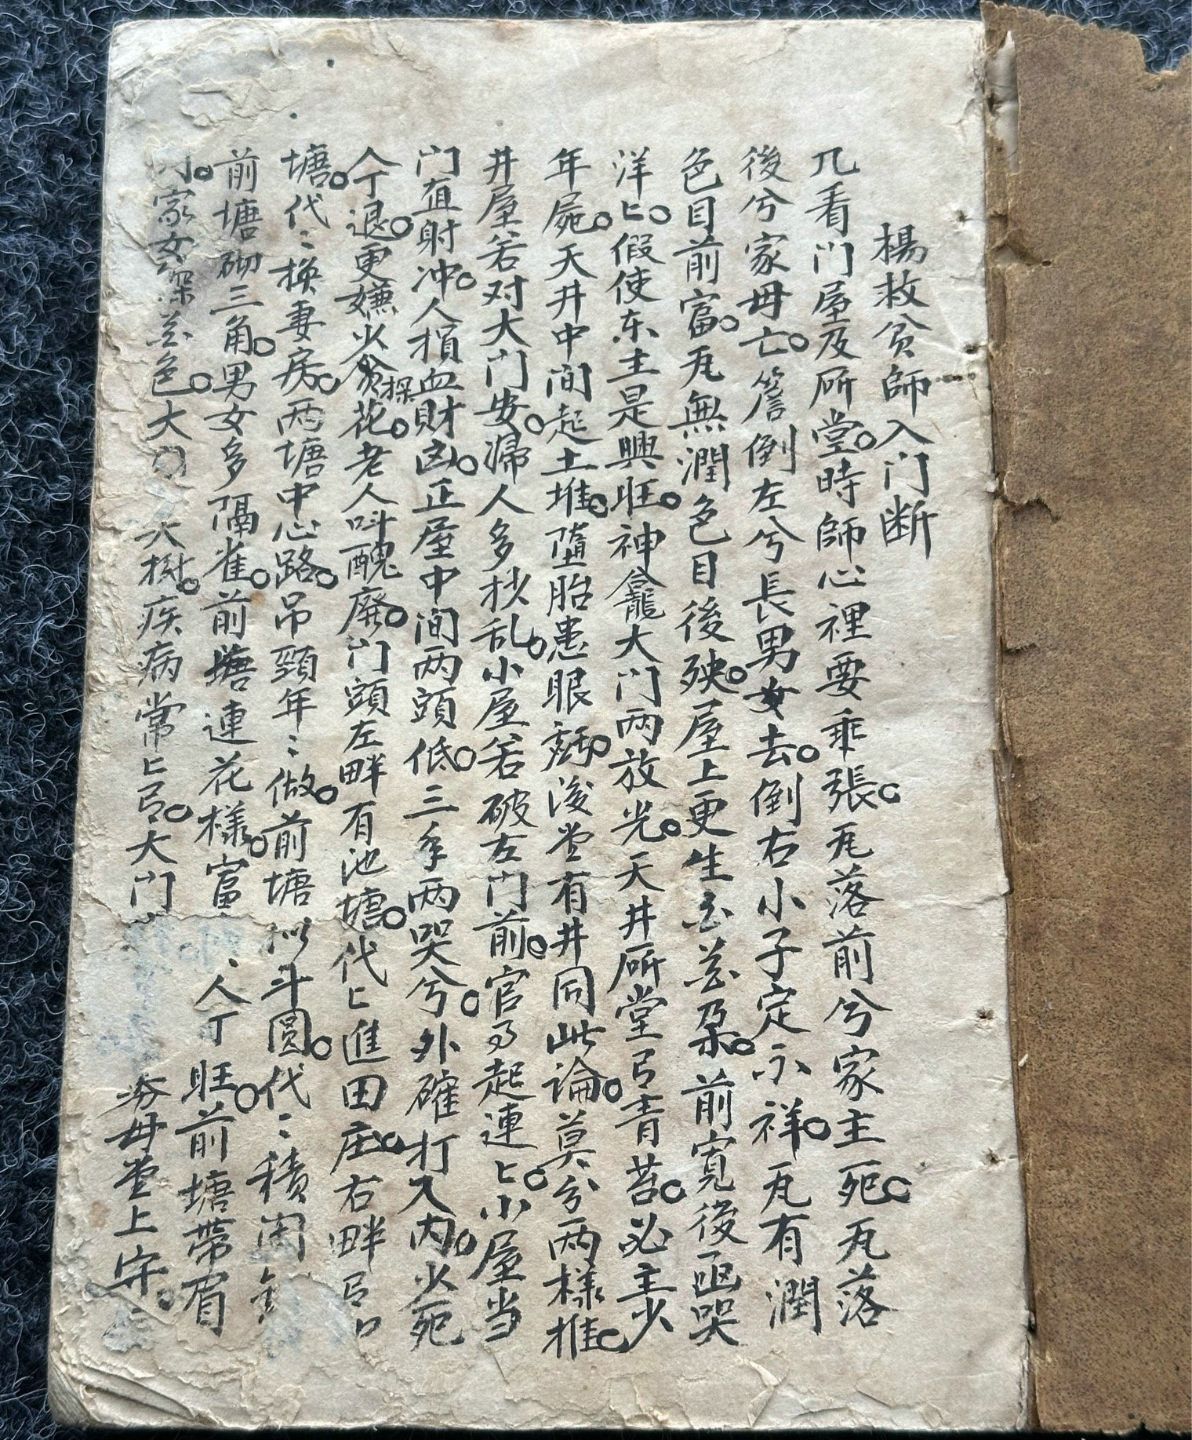 楊救貧師入门断
凡看门屋及厛堂。時師心裡要乖張。瓦落前兮家主死。瓦落
後兮家母亡。簷倒左兮長男女去。倒右小子定不祥。瓦有潤
色目前富。瓦無潤色目後殃。屋上更生名花朶。前寬後凶哭
洋〻。假使东主是興旺。神龕大门两放光。天井厛堂有青苔。必主少
年屍。天井中间起土堆。墮胎患眼 後堂有井同此論。莫分两樣推。
井屋若对大门安。婦人多扰乱。小屋若破左门前。官司起連〻。小屋当
门直射冲。人損血財凶。正屋中间两頭低。三年两哭兮。外確打入内。少死
人丁退。更嫌少 探花。老人叫醜廢。门頭左畔有池塘。代〻進田庄。右畔有
塘。代〻換妻房。两塘中心路。吊頸年〻做。前塘似斗圓。代〻積闲
前塘砌三角。男女多隔雀。前塘連花樣。富 人丁旺。前塘帶眉
家女 色。大 大樹。疾病常〻有。大门 母堂上守。